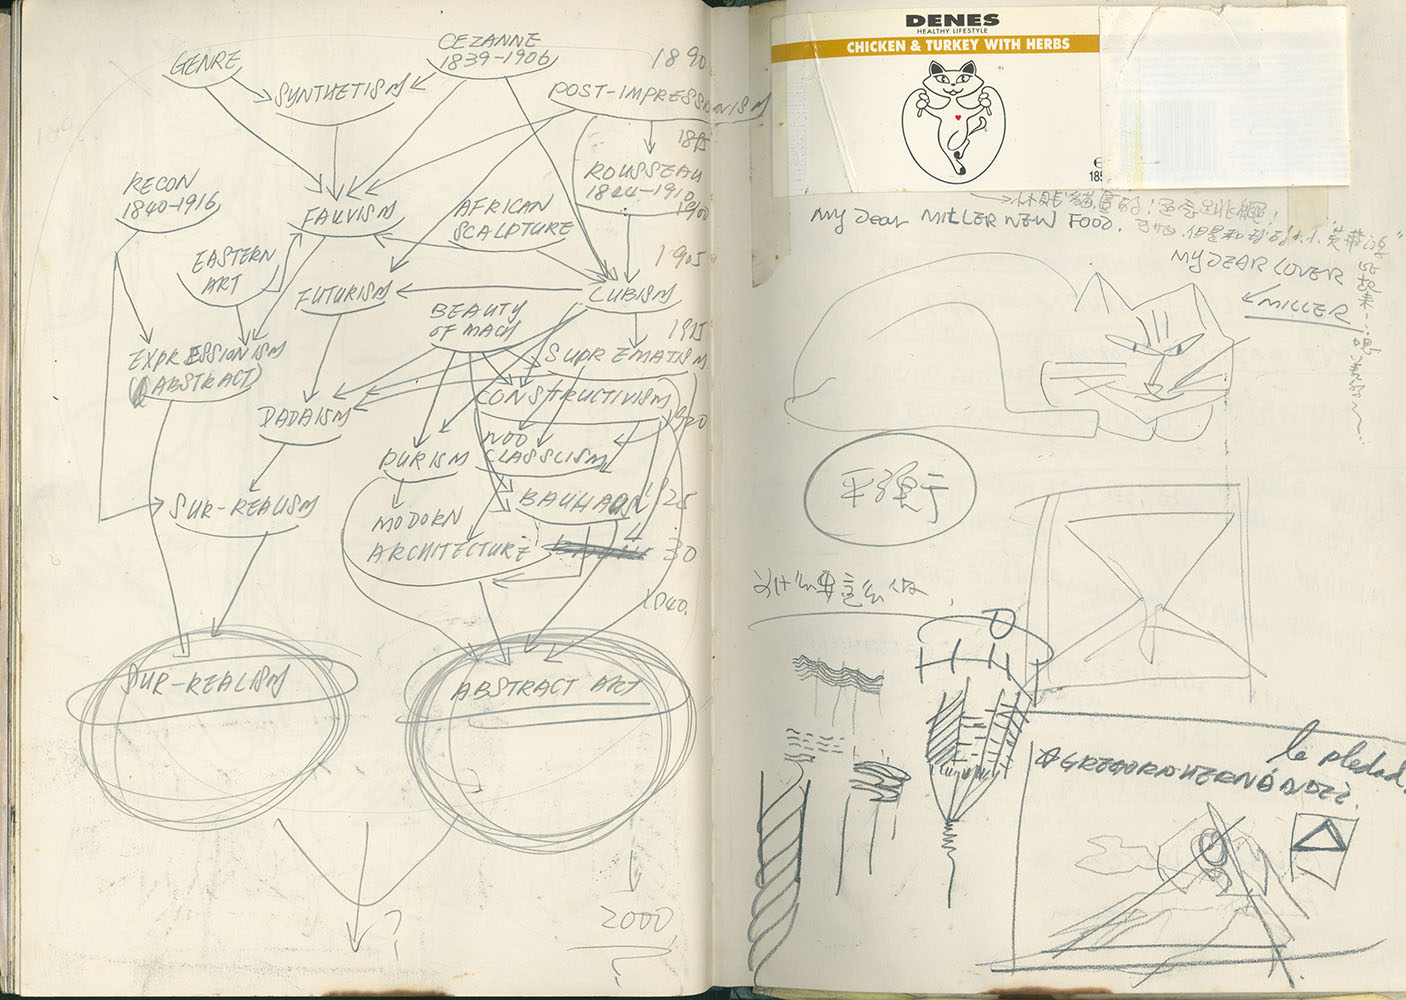 GENRE
CEZANNE
1839-1906
1890
SYNTHETISM
POST-IMPRESSIONISM
1895
ROUSSEAU
1844-1910
1900
RECON
1840-1916
FAUVISM
AFRICAN
SCALPTURE
EASTERN
ART
1905
FUTURISM
CUBISM
BEAUTY
OF MACH
1915
EXPRESSIONISM
(ABSTRACT)
SUPREMATISM
CONSTRUCTIVISM
DADAISM
1920
PURISM
NOO
CLASSLISM
SUR-REALISM
BAUHAUS
1925
MODORN
ARCHITECTURE
30
1940.
SUR-REALISM
ABSTRACT ART
?
2000
?
DENES
HEALTHY LIFESTYLE
CHICKEN & TURKEY WITH HERBS
e
185
My Dear MILLER NEW FOOD.
MY DEAR LOVER
MILLER
la piedad.
GREGORIO HERNÁNDEZ.